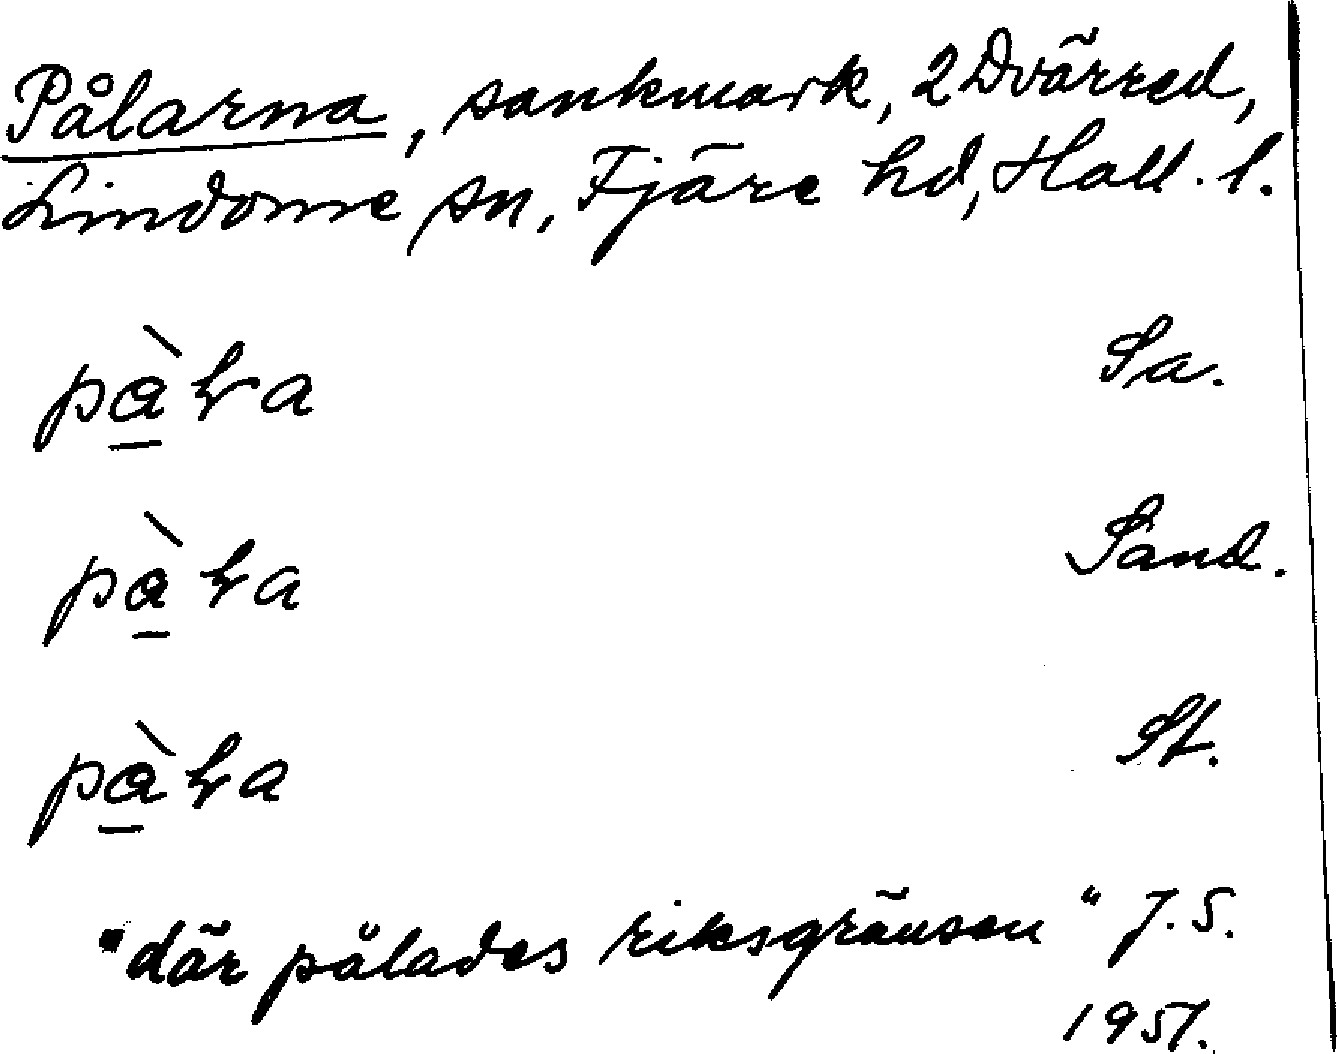 Pålarna, sankmark, 2 Dvärred,
Lindome sn, Fjäre hd, Hall. l.
pàɽa Sa.
pàɽa Sand.
pàɽa St.
"där pålades riksgränsen" J.S.
1951.